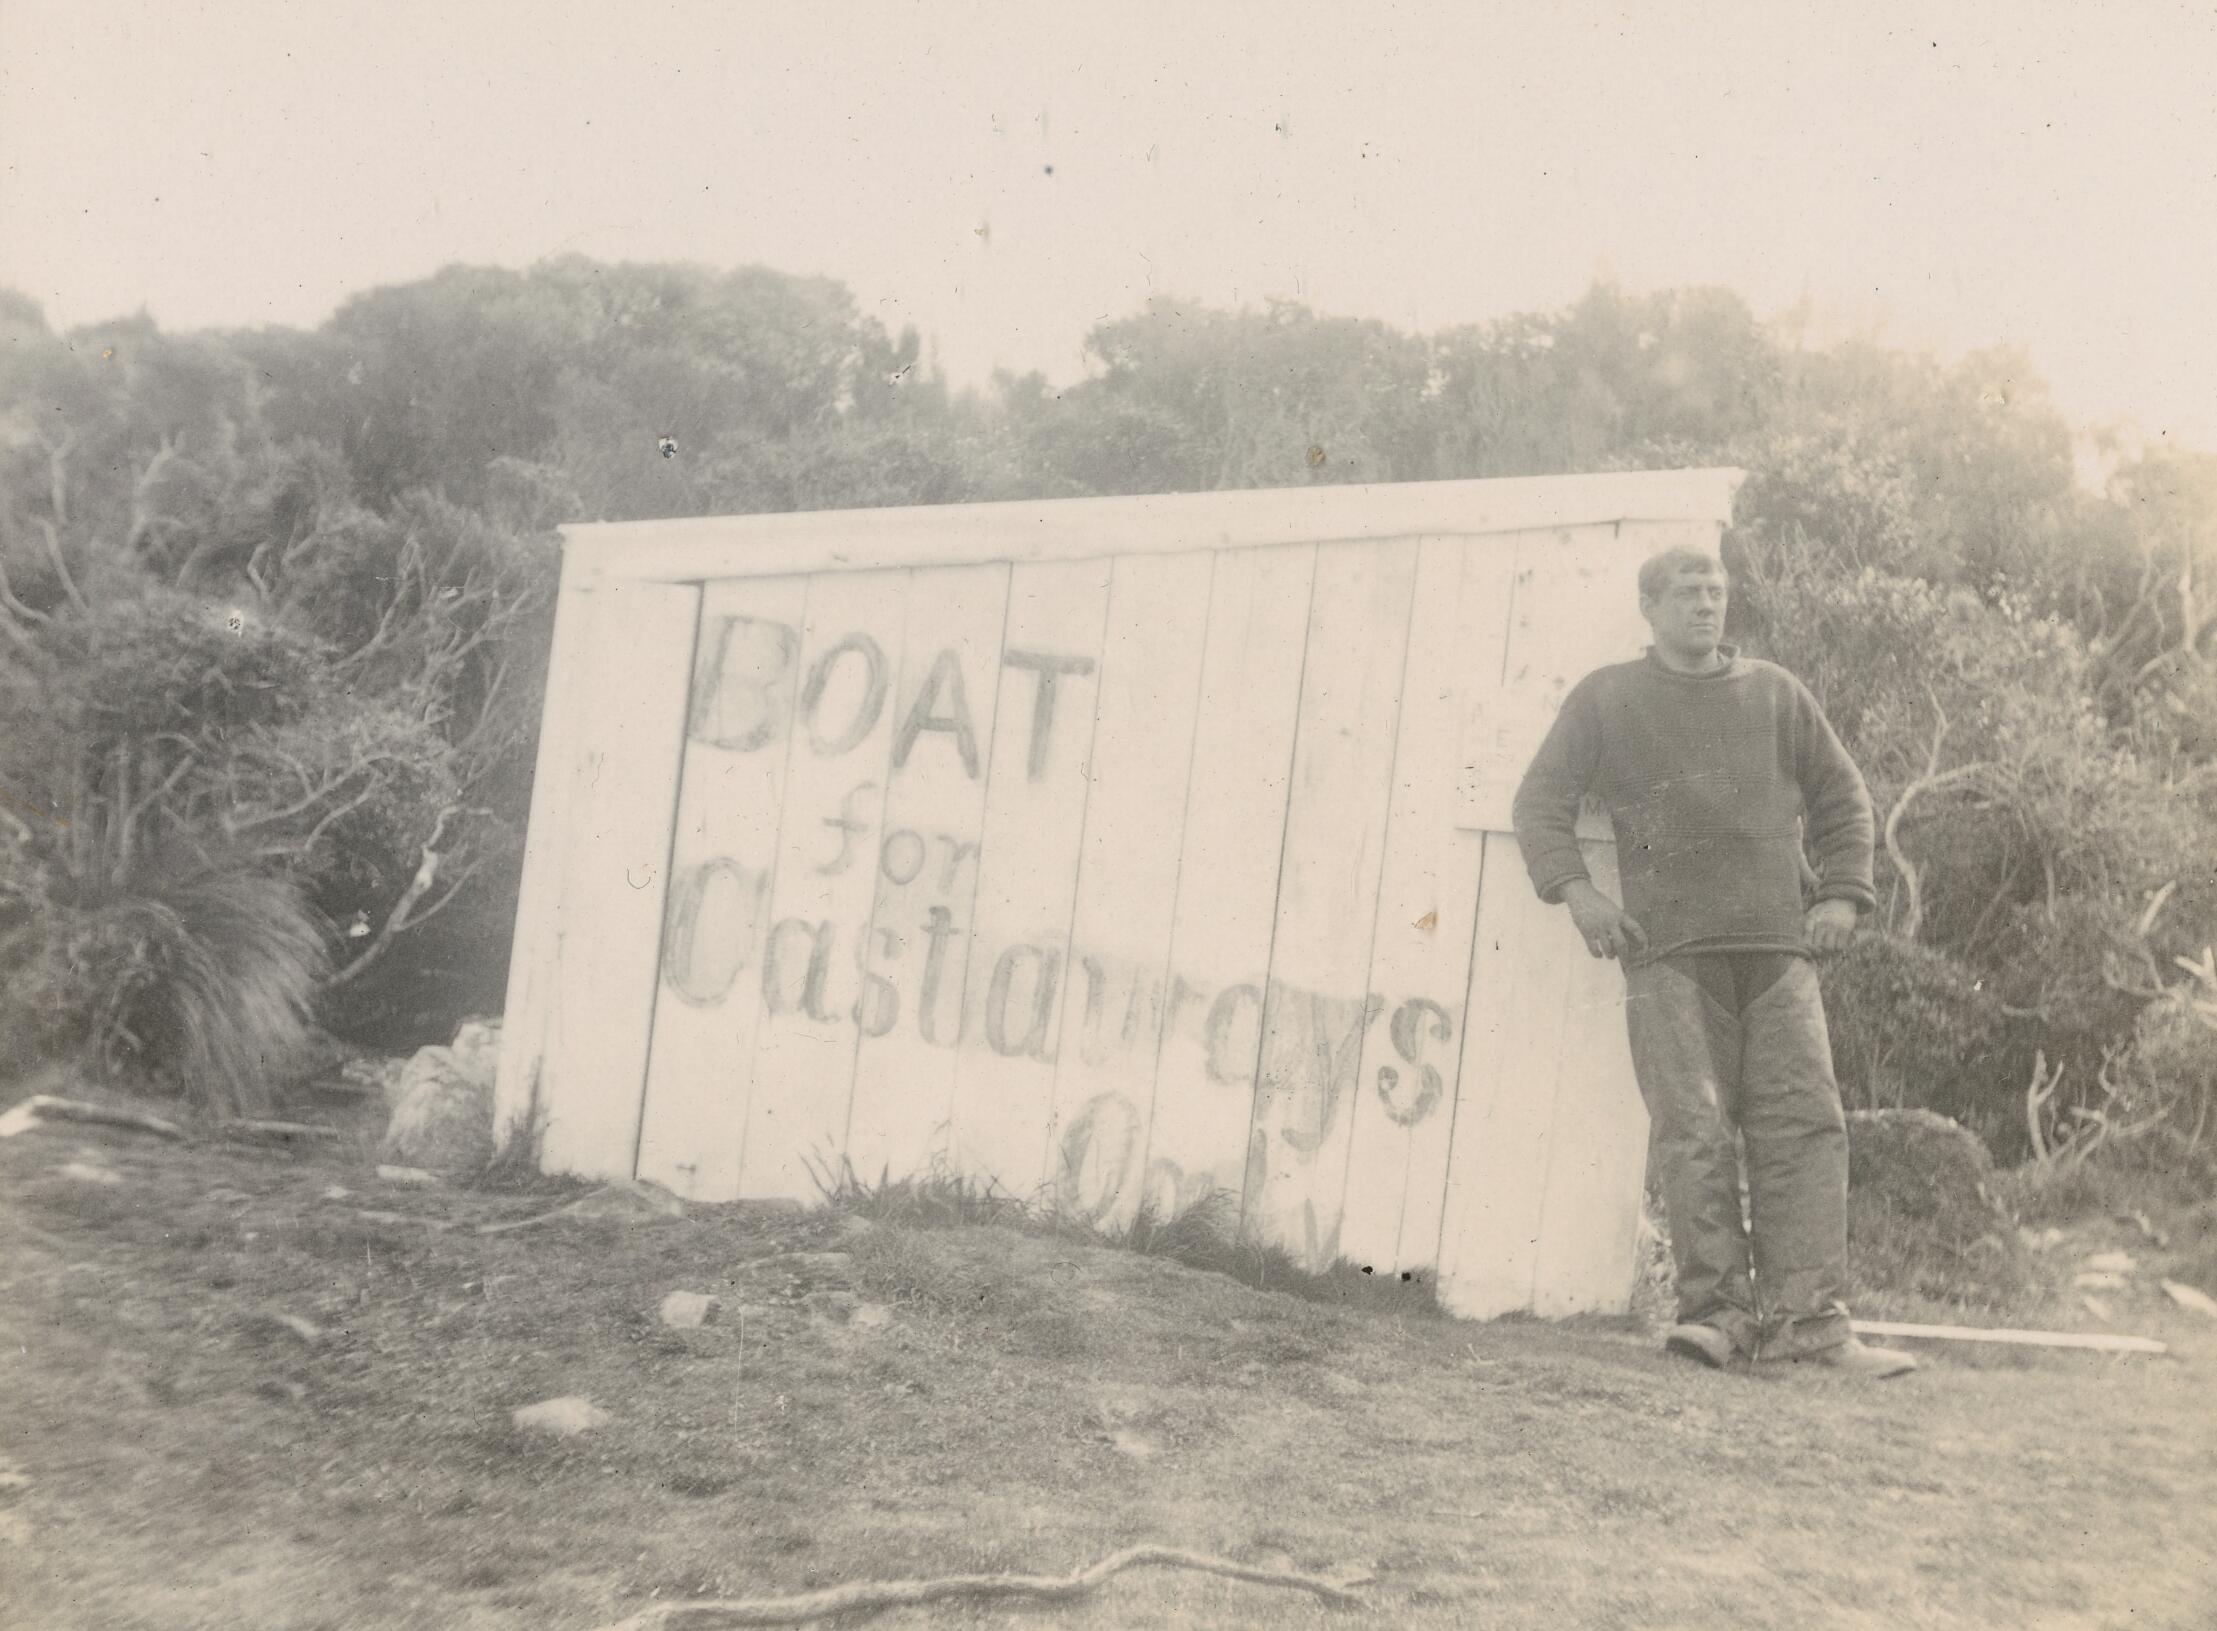 BOAT
for
Castaways
Only